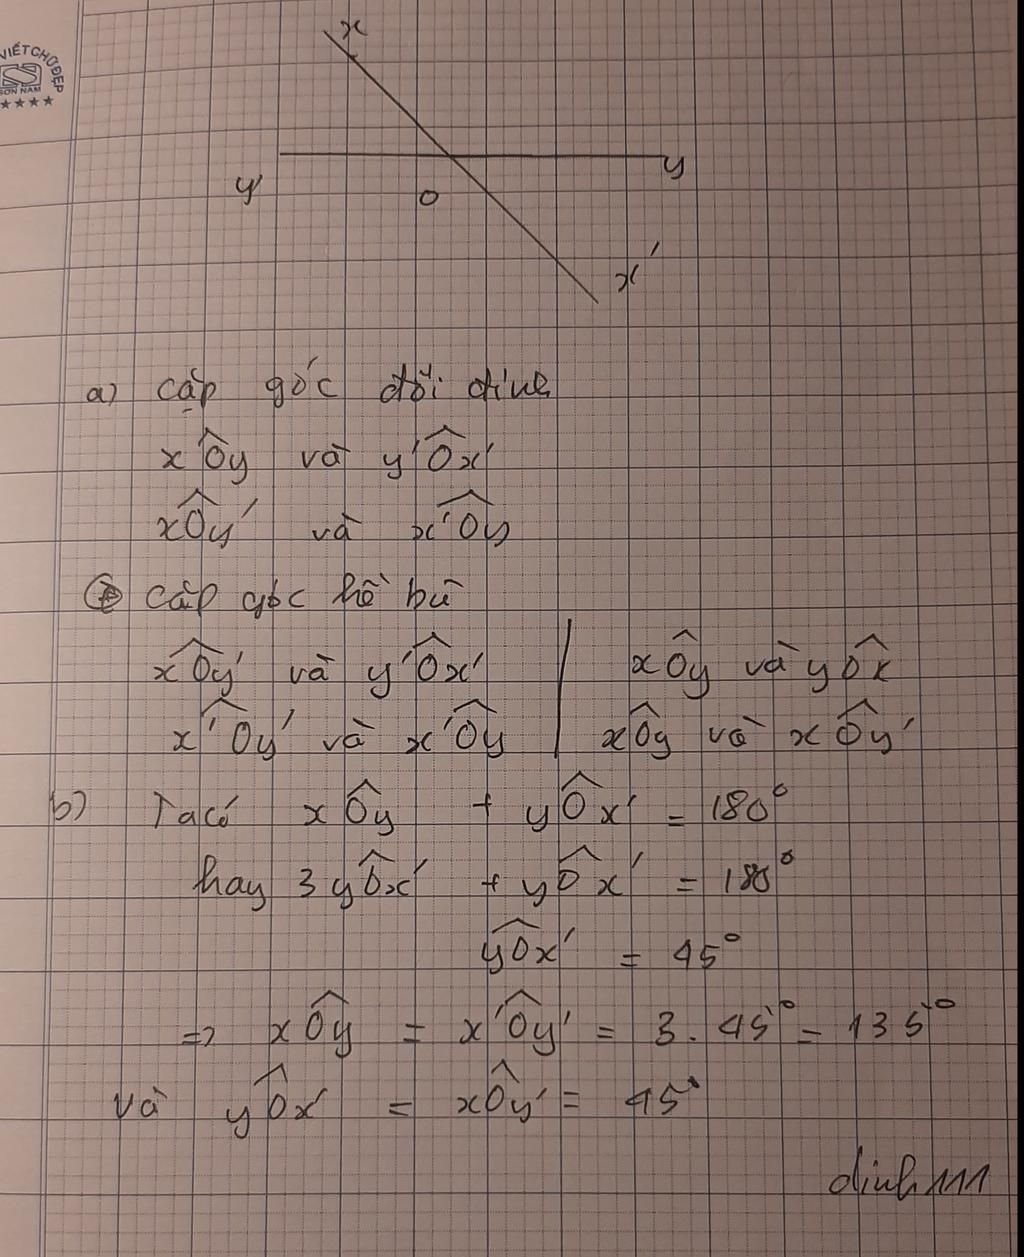 VIẾT CHỮ ĐẸP
SƠN NAM
x
y'
O
y
x'
a) cặp góc đối đỉnh
xÔy và y'Ôx'
xÔy' và x'Ôy
cặp góc kề bù
xÔy' và y'Ôx' | xÔy và yÔx
x'Ôy' và x'Ôy | xÔy và xÔy'
b) Ta có xÔy + yÔx' = 180°
hay 3yÔx' + yÔx' = 180°
yÔx' = 45°
=> xÔy = x'Ôy' = 3.45° = 135°
và yÔx' = xÔy' = 45°
dinh111